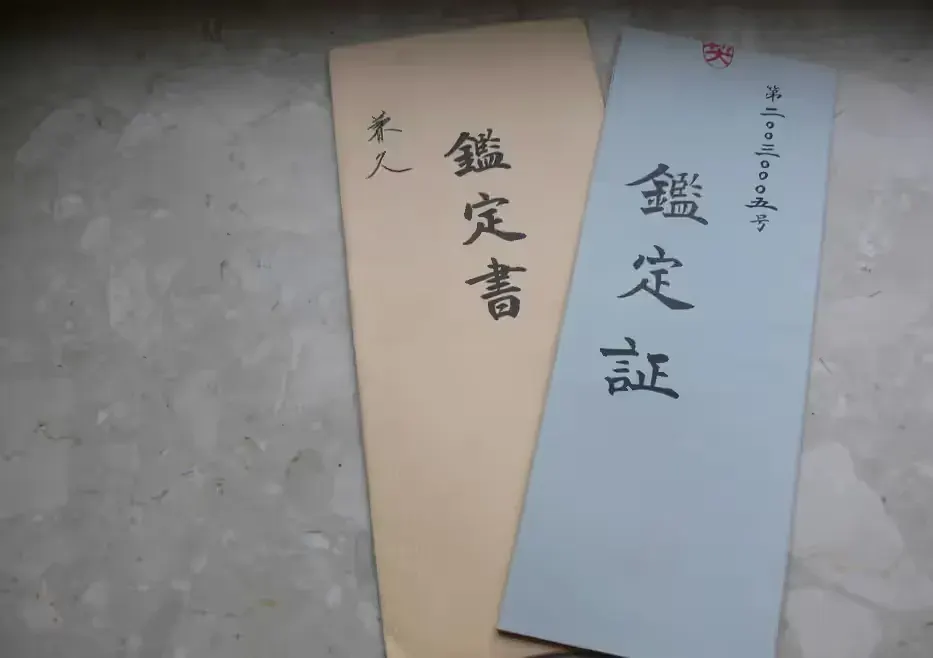 第二〇〇三〇〇〇五号
鑑定証
鑑定書
兼久